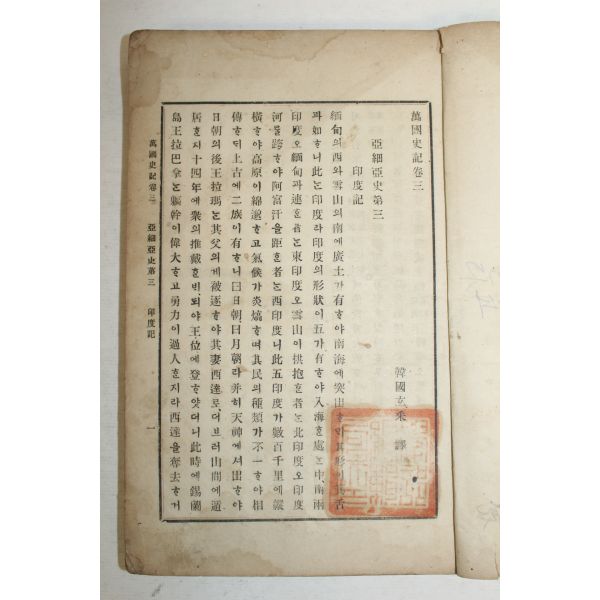 萬國史記卷三
韓國玄采 譯
亞細亞史第三
印度記
緬甸의西와雪山의南에廣土가有ᄒᆞ야南海에突出
과如ᄒᆞ니此ᄂᆞᆫ印度라印度의形狀이五가有ᄒᆞ야入海ᄒᆞᆫ處ᄂᆞᆫ中南兩
印度오緬甸과連ᄒᆞᆫ者ᄂᆞᆫ東印度오雪山이拱抱ᄒᆞᆫ者ᄂᆞᆫ北印度오印度
河ᄅᆞᆯ跨ᄒᆞ야阿富汗을距ᄒᆞᆫ者ᄂᆞᆫ西印度니此五印度가數百千里에縱
橫ᄒᆞ야高原이綿邈ᄒᆞ고氣候가炎熇ᄒᆞ며其民의種類가不一ᄒᆞ야相
傳ᄒᆞ되上古에二族이有ᄒᆞ니曰日朝曰月朝라幷히天神에셔出ᄒᆞ야
日朝의後王拉瑪ᄂᆞᆫ其父의게被逐ᄒᆞ야其妻西達로더브러山間에遁
居ᄒᆞᆫ지十四年에衆의推戴ᄒᆞᆫᄇᆡ되야王位에登ᄒᆞ얏더니此時에錫蘭
島王拉巴拿ᄂᆞᆫ軀幹이偉大ᄒᆞ고勇力이過人ᄒᆞᆫ지라西達을奪去ᄒᆞ거
萬國史記卷三 亞細亞史第三 印度記 一